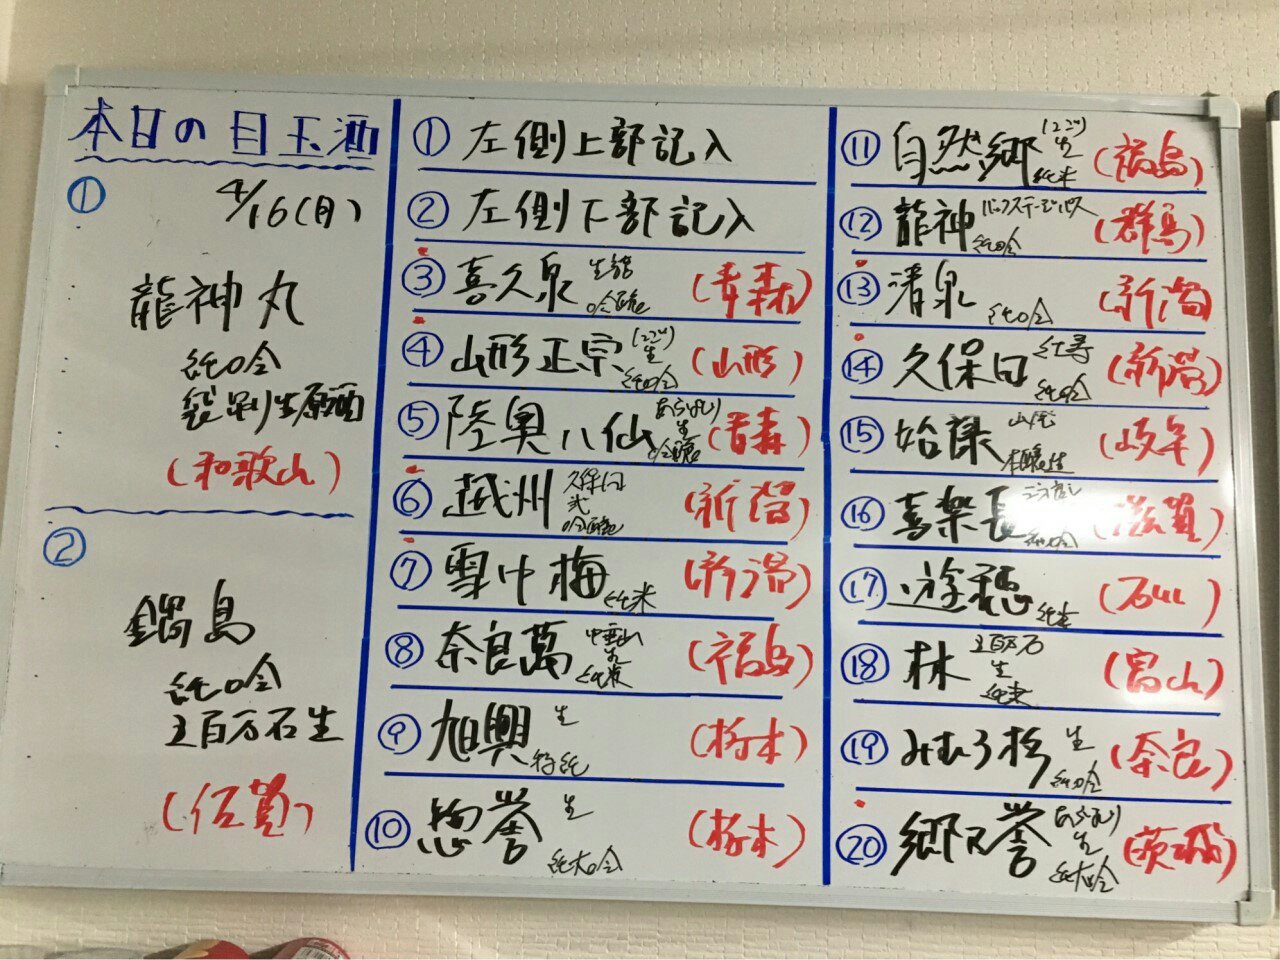 本日の目玉酒
① 4/16(月)
龍神丸
純吟
袋吊り生原酒
(和歌山)
②
鍋島
純吟
五百万石生
(佐賀)
① 左側上部記入
② 左側下部記入
③ 喜久泉 生詰 吟醸 (青森)
④ 山形正宗 生 純吟 (山形)
⑤ 陸奥八仙 あらばしり 生 吟醸 (青森)
⑥ 越州 久保田 弐 吟醸 (新潟)
⑦ 雪中梅 純米 (新潟)
⑧ 奈良萬 中垂れ 生 純米 (福島)
⑨ 旭興 生 特純 (栃木)
⑩ 惣誉 生 純大吟 (栃木)
⑪ 自然郷 生 純米 (福島)
⑫ 龍神 バックステージパス 純吟 (群馬)
⑬ 清泉 純吟 (新潟)
⑭ 久保田 紅寿 純吟 (新潟)
⑮ 始禄 山廃 本醸生 (岐阜)
⑯ 喜楽長 純吟 (滋賀)
⑰ 遊穂 純米 (石川)
⑱ 林 五百万石 生 純米 (富山)
⑲ みむろ杉 生 純吟 (奈良)
⑳ 郷乃誉 あらばしり 生 純大吟 (茨城)